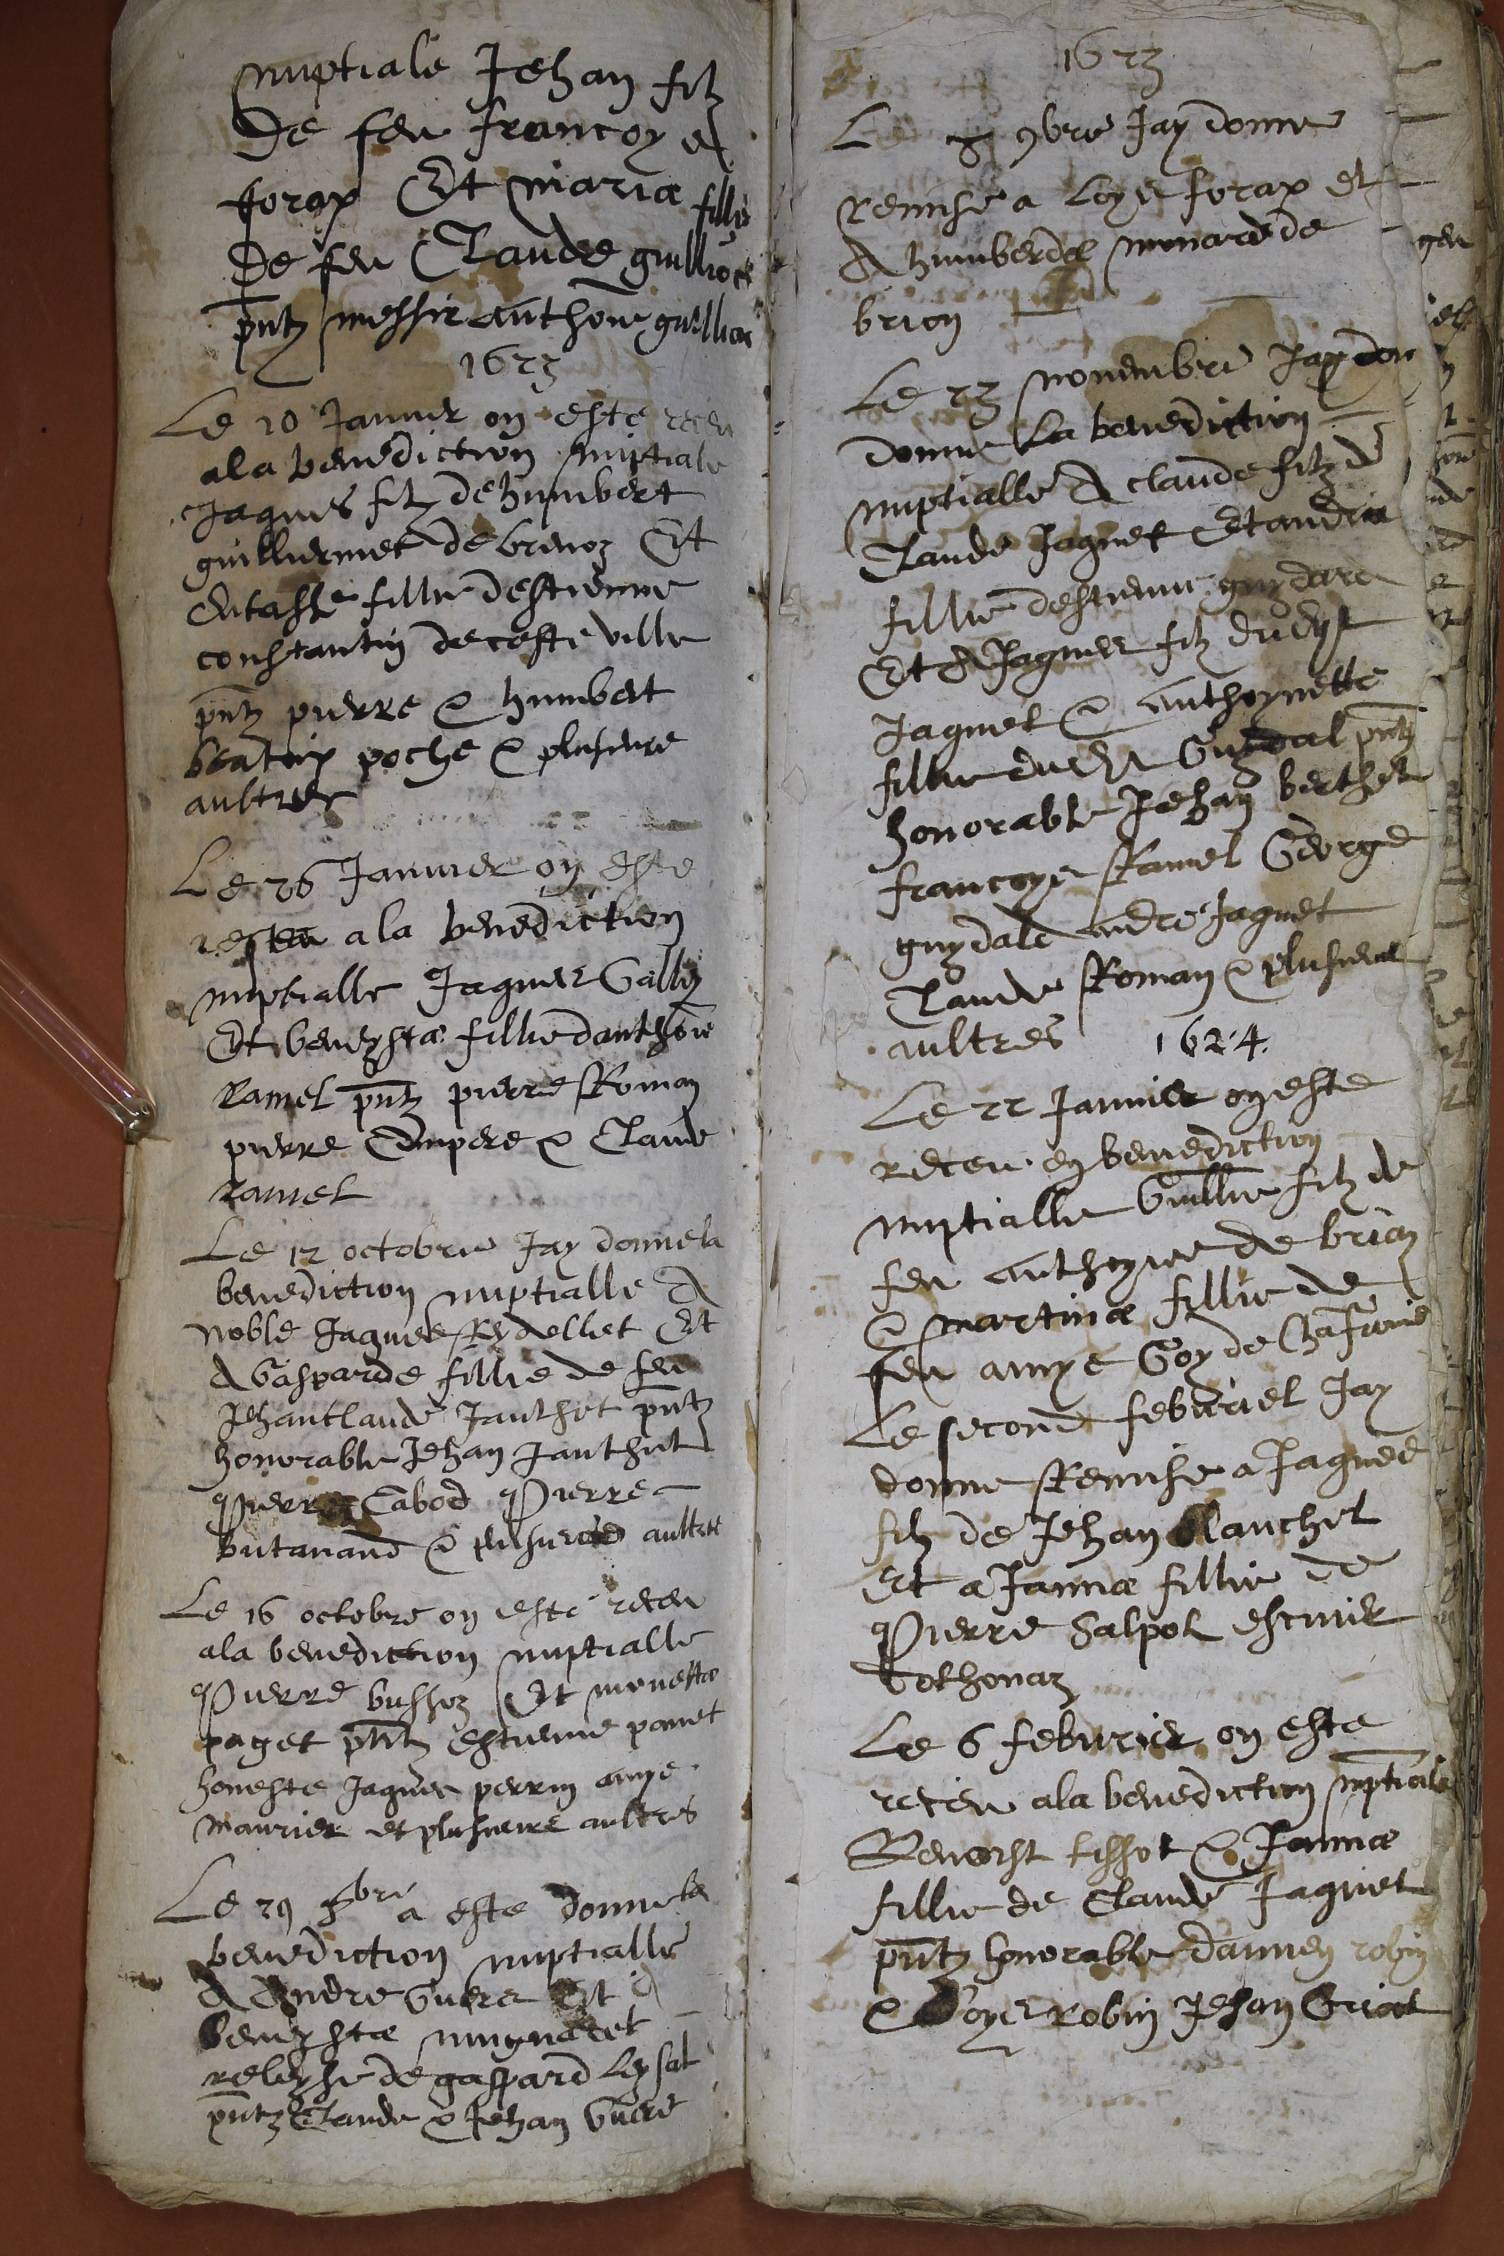 nuptiale Jehan filz
De feu francoys
forax Et Maria fillie
De feu Claude guilliot
pntz messire anthoine guilliot
1623
Le 10 Janvier on este receu
a la benediction nuptiale
Jaques filz de humbert
guilliermet de brenoz Et
Entasse fillie destienne
constantin de ceste ville
pntz pierre & humbert
beatrix poche & plusieurs
aultres
Le 26 Janvier on este
receu a la benediction
nuptialle Jaques Gally
Et benoyste fillie danthoine
Ramel pntz pierre Roman
pierre Compere & Claude
ramel
Le 12 octobre Jay donne la
benediction nuptialle A
noble Jaques Reydellet Et
A Gasparde fillie de feu
Jehan Claude Janthet pntz
honorable Jehan Janthet
Pierre Cabod Pierre
butavand & plusieurs aultres
Le 16 octobre on este receu
a la benediction nuptialle
Pierre bussoz Et
paget pntz estienne panet
honeste Jaques perrin amye
maurier et plusieurs aultres
Le 29 8bre a este donne la
benediction nuptialle
A Andre Guere Et A
benoyste
de gaspard Leysat
pntz Claude & Jehan Guere
1623
Le 9bre Jay donne
Remise a Loys forax et
A humberde monard de
brion
Le 23 novembre Jay don
donne La benediction
nuptialle A claude filz de
Claude Jaquet Et andrea
fillie destienne guydard
Et A Jaques filz dudyt
Jaquet & anthoynette
fillie dudyt Guydal pntz
honorable Jehan berthet
francoys Ramel George
guydald andre Jaquet
Claude Roman & plusieurs
aultres 1624.
Le 22 Janvier on este
receu en benediction
nuptialle Guillie filz de
feu anthoyne de brion
& martina fillie de
feu amye Goy de
Le second febvriel Jay
donne Remise a Jaques
filz de Jehan blanchet
Et a Janna fillie de
Pierre Salpol escuier
bethonaz
Le 6 febvrier on este
receu a la benediction nuptiale
Benoist tissot & Janna
fillie de Claude Jaquet
pntz honorable robin
& Robin Jehan